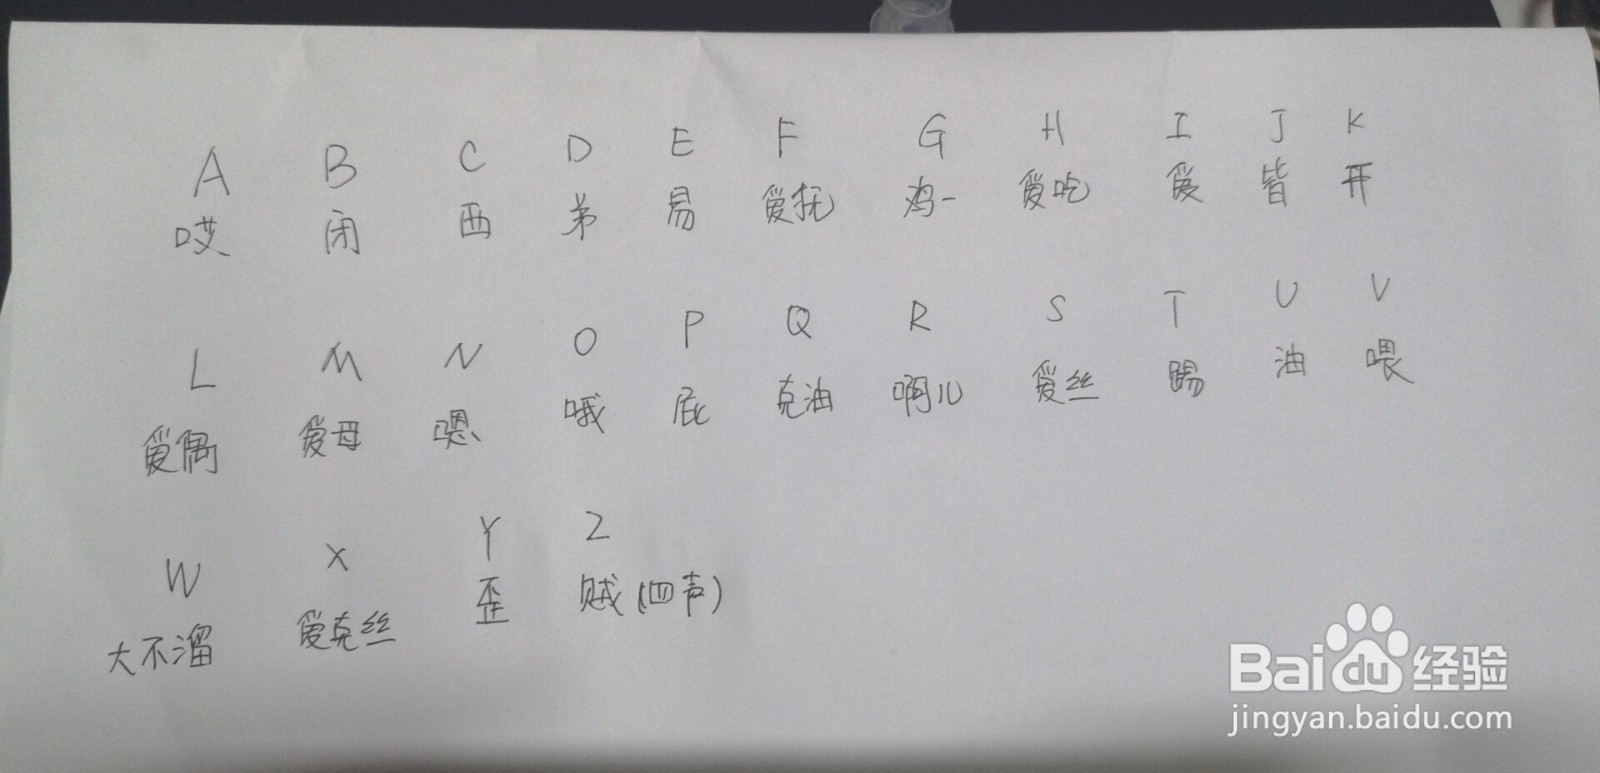 A B C D E F G H I J K
哎 闭 西 弟 易 爱抚 鸡一 爱吃 爱 皆 开
L M N O P Q R S T U V
爱偶 爱母 嗯 哦 屁 克油 啊儿 爱丝 踢 油 喂
W X Y Z
大不溜 爱克丝 歪 贼(四声)
Bai du 经验
jingyan.baidu.com